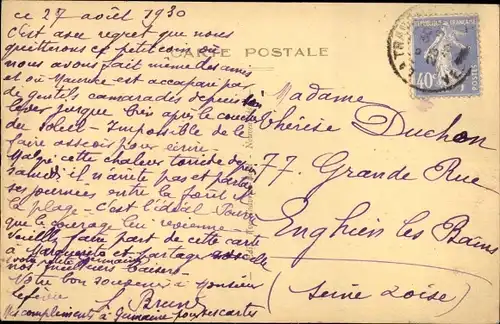 ce 27 août 1930
c'est avec regret que nous
quitterons ce petit coin où
nous avons fait même des amis
et où est accaparé par
de gentils camarades depuis son
lever jusque très après le coucher
du soleil - Impossible de le
faire asseoir pour écrire -
Malgré cette chaleur torride depuis
samedi il n'arrête pas et partage
ses journées entre la forêt &
la plage - c'est l'idéal
que le courage lui revienne -
Veuillez faire part de cette carte
à Marguerite et partager avec elle
nos meilleurs baisers
Votre bon souvenir à Monsieur
Brun
Mes compliments à Germaine pour ses cartes
CARTE POSTALE
Madame
Thérèse Duchon
77. Grande Rue
Enghien les Bains
(Seine & Oise)
REPUBLIQUE FRANÇAISE
40c
POSTES
LA TRAN